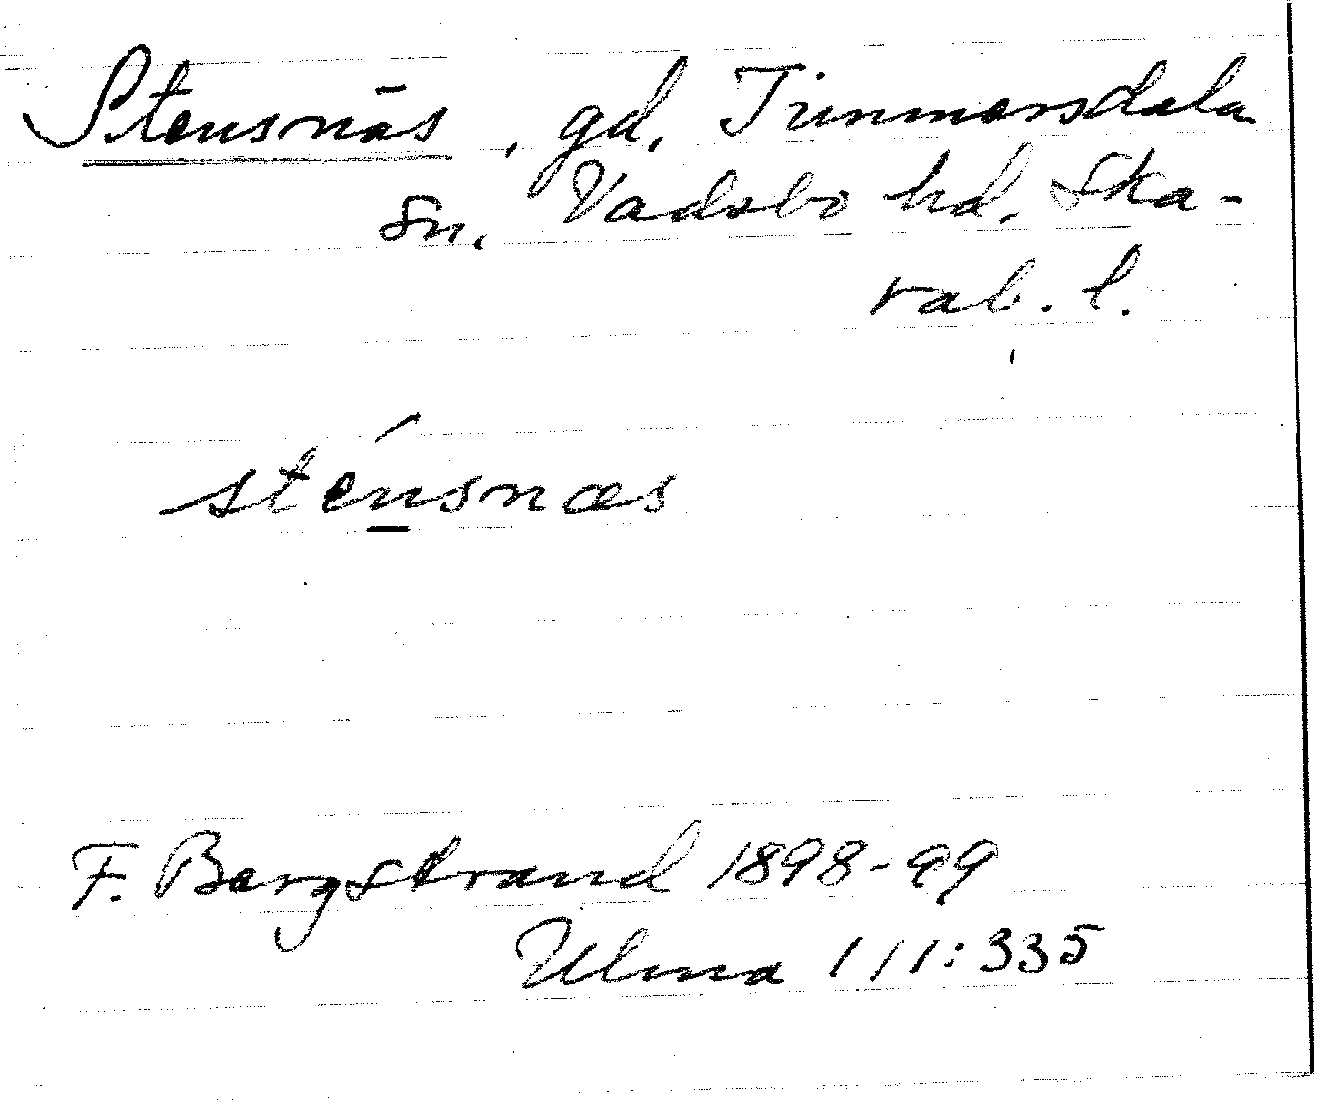 Stensnäs, gd, Timmersdala
sn, Vadsbo hd. Ska-
rab. l.
sténsnæs
F. Bergstrand 1898-99
Ulma 111:335